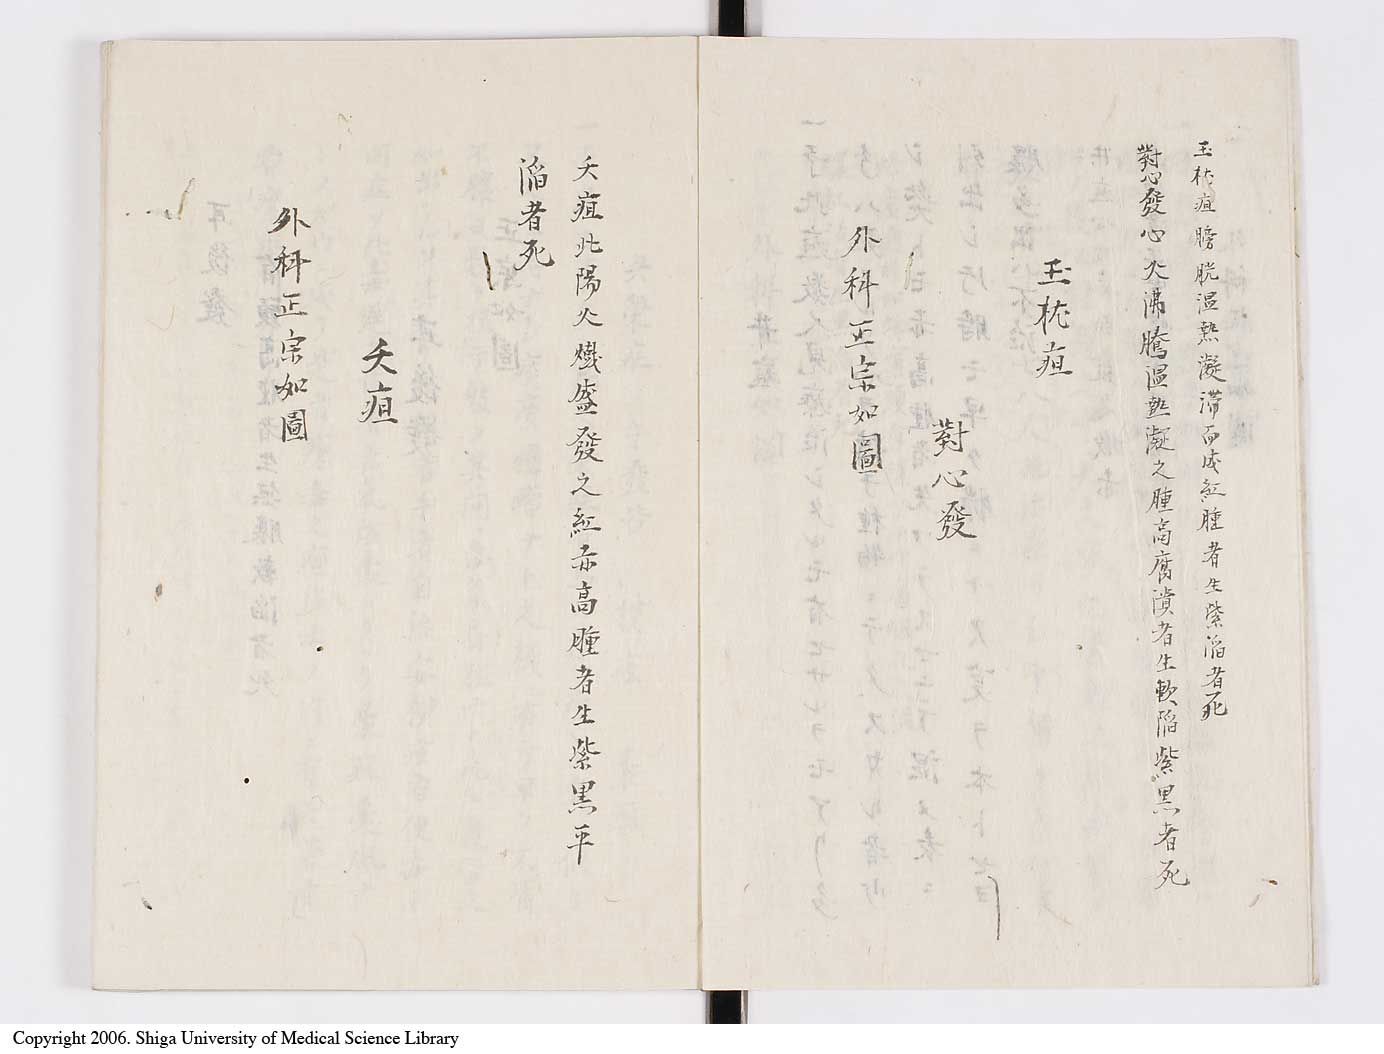 玉枕疽膀胱温熱凝滞而成紅腫者生紫陥者死
對心發心火沸騰温熱凝之腫高腐潰者生軟陥紫黒者死
玉枕疽
對心發
外科正宗如圖
夭疽此陽火熾盛發之紅赤高腫者生紫黒平
陥者死
夭疽
外科正宗如圖
Copyright 2006. Shiga University of Medical Science Library